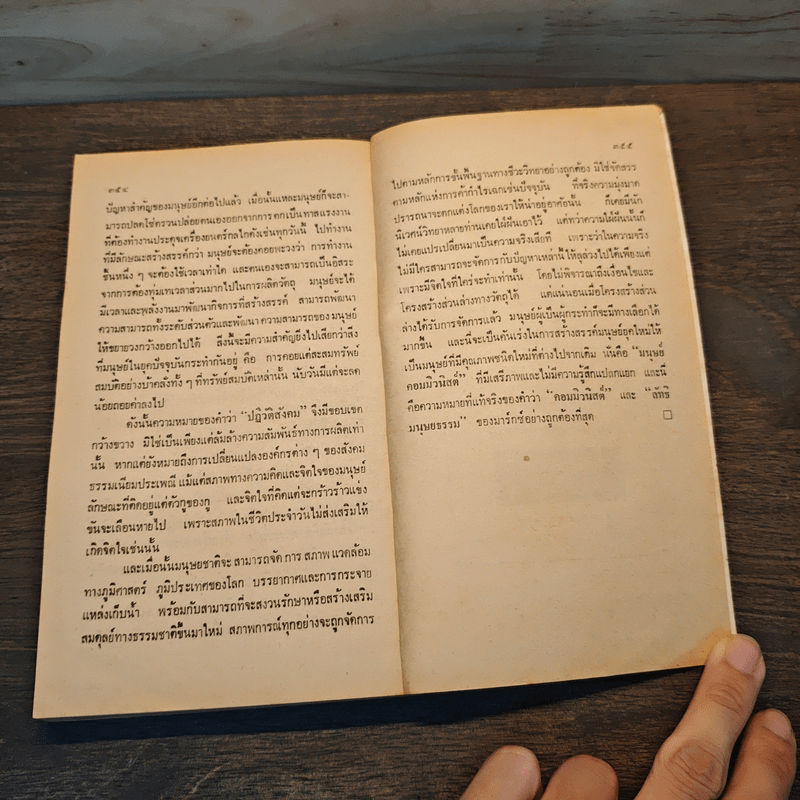 ๓๕๔
ปัญหาสำคัญของมนุษย์อีกต่อไปแล้ว เมื่อนั้นแหละมนุษย์ก็จะสา-
มารถปลดโซ่ตรวนปล่อยตนเองออกจากการตกเป็นทาสแรงงาน
ที่ต้องทำงานประดุจเครื่องยนต์กลไกดังเช่นทุกวันนี้ ไปทำงาน
ที่มีลักษณะสร้างสรรค์กว่า มนุษย์จะต้องคอยพะวงว่า การทำงาน
ชิ้นหนึ่ง ๆ จะต้องใช้เวลาเท่าใด และตนเองจะสามารถเป็นอิสระ
จากการต้องทุ่มเทเวลาส่วนมากไปในการผลิตวัตถุ มนุษย์จะได้
มีเวลาและพลังงานมาพัฒนากิจการที่สร้างสรรค์ สามารถพัฒนา
ความสามารถทั้งระดับส่วนตัวและพัฒนาความสามารถของมนุษย์
ให้ขยายวงกว้างออกไปได้ สิ่งนี้จะมีความสำคัญยิ่งไปเสียกว่าสิ่ง
ที่มนุษย์ในยุคปัจจุบันกระทำกันอยู่ คือ การคอยแต่สะสมทรัพย์
สมบัติอย่างบ้าคลั่งทั้ง ๆ ที่ทรัพย์สมบัติเหล่านั้น นับวันมีแต่จะลด
น้อยถอยค่าลงไป
ดังนั้นความหมายของคำว่า “ปฏิวัติสังคม” จึงมีขอบเขต
กว้างขวาง มิใช่เป็นเพียงแต่ล้มล้างความสัมพันธ์ทางการผลิตเท่า
นั้น หากแต่ยังหมายถึงการเปลี่ยนแปลงองค์กรต่าง ๆ ของสังคม
ธรรมเนียมประเพณี แม้แต่สภาพทางความคิดและจิตใจของมนุษย์
ลักษณะที่คิดอยู่แต่ตัวกูของกู และจิตใจที่คิดแต่จะกร้าวร้าวแข่ง
ขันจะเลือนหายไป เพราะสภาพในชีวิตประจำวันไม่ส่งเสริมให้
เกิดจิตใจเช่นนั้น
และเมื่อนั้นมนุษยชาติจะสามารถจัดการสภาพแวดล้อม
ทางภูมิศาสตร์ ภูมิประเทศของโลก บรรยากาศและการกระจาย
แหล่งเก็บน้ำ พร้อมกับสามารถที่จะสงวนรักษาหรือสร้างเสริม
สมดุลย์ทางธรรมชาติขึ้นมาใหม่ สภาพการณ์ทุกอย่างจะถูกจัดการ
๓๕๕
ไปตามหลักการขั้นพื้นฐานทางชีวะวิทยาอย่างถูกต้อง มิใช่จัดสรร
ตามหลักแห่งการค้ากำไรเฉกเช่นปัจจุบัน ที่จริงความมุ่งมาด
ปรารถนาจะตกแต่งโลกของเราให้น่าอยู่อาศัยนั้น ก็เคยมีนัก
นิเวศน์วิทยาหลายท่านเคยใฝ่ฝันเอาไว้ แต่ทว่าความใฝ่ฝันนั้นก็
ไม่เคยแปรเปลี่ยนมาเป็นความจริงเสียที เพราะว่าในความจริง
ไม่มีใครสามารถจะจัดการกับปัญหาเหล่านี้ให้ลุล่วงไปได้เพียงแต่
เพราะมีจิตใจที่ใคร่จะทำเท่านั้น โดยไม่พิจารณาถึงเงื่อนไขและ
โครงสร้างส่วนล่างทางวัตถุได้ แต่แน่นอนเมื่อโครงสร้างส่วน
ล่างได้รับการจัดการแล้ว มนุษย์ผู้เป็นผู้กระทำก็จะมีทางเลือกได้
มากขึ้น และนี่จะเป็นคันเร่งในการสร้างสรรค์มนุษย์ยุคใหม่ให้
เป็นมนุษย์ที่มีคุณภาพชนิดใหม่ที่ต่างไปจากเดิม นั่นคือ “มนุษย์
คอมมิวนิสต์” ที่มีเสรีภาพและไม่มีความรู้สึกแปลกแยก และนี่
คือความหมายที่แท้จริงของคำว่า “คอมมิวนิสต์” และ “ลัทธิ
มนุษยธรรม” ของมาร์กซ์อย่างถูกต้องที่สุด □